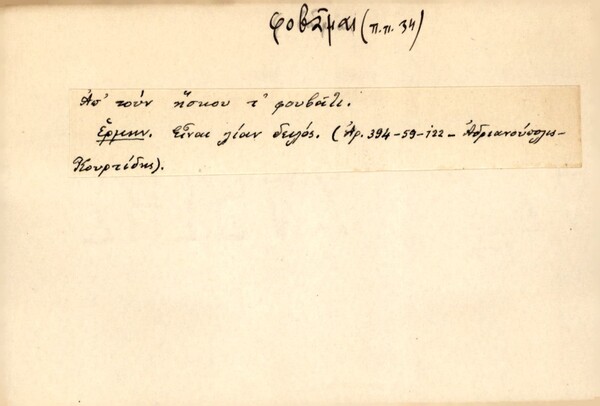 φοβᾶμαι (π.π. 34)
Ἀπ' τοὺν ἥσκιου τ' φουβᾶτι.
Ἑρμην. Εἶναι λίαν δειλός. (Ἀρ. 394-59-122 - Ἀδριανούπολις-
Κουρτίδης).